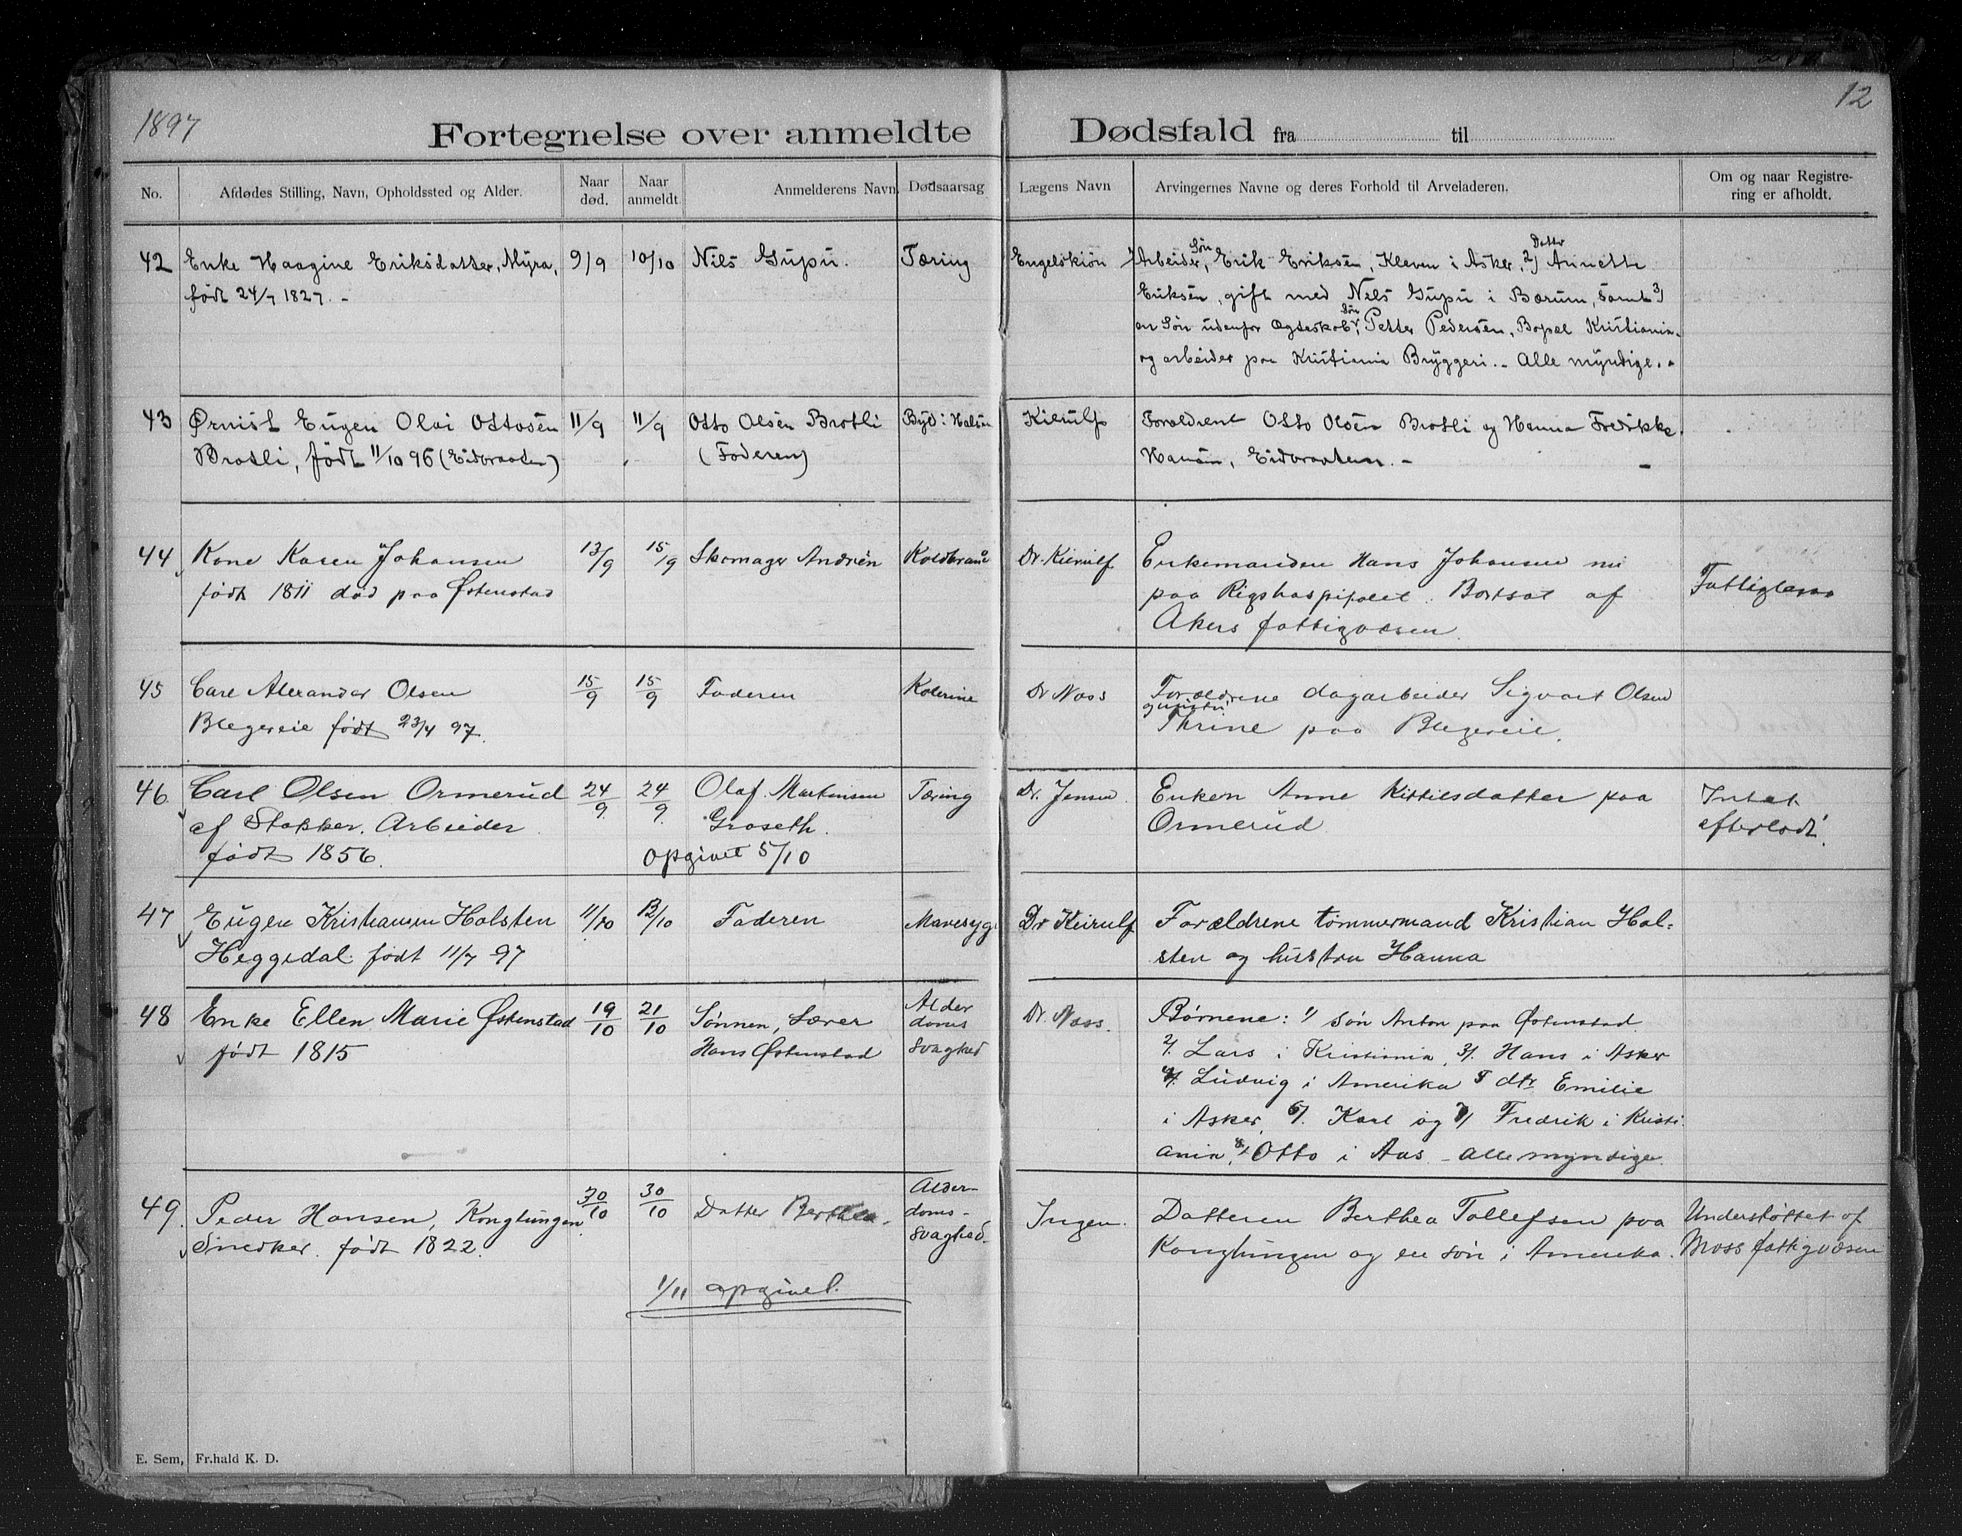 1897
12
Fortegnelse over anmeldte Dødsfald fra til
No.
Afdødes Stilling, Navn, Opholdssted og Alder.
Naar død.
Naar anmeldt.
Anmelderens Navn.
Dødsaarsag
Lægens Navn
Arvingernes Navne og deres Forhold til Arveladeren.
Om og naar Registre-
ring er afholdt.
42 Enke Haagine Eriksdatter, Myra,
født 24/7 1827. -
9/9
10/10
Nils Gupu.
Tæring
Engelskiön
1/ Arbeider, Søn Erik Eriksen, Kleven i Asker, 2/ Datter Annette
Eriksen, gift med Nils Gupu i Bærum, samt 3/
en Søn udenfor Ægteskab, Søn Petter Pedersen, Bopæl Kristiania
og arbeider paa Kristiania Bryggeri. - Alle myndige. -
43 Ørnist Eugen Olai Ottosen
Brotli, født 11/10 96 (Eidbraaten)
11/9
11/9
Otto Olsen Brotli
(Faderen)
Byld i Halsen
Kierulf
Forældrene Otto Olsen Brotli og Hanna Fredrikke
Hansen, Eidbraaten. -
44 Kone Karen Johansen
født 1811 død paa Østenstad
13/9
15/9
Skomager Andrèn
Koldbrand
Dr. Kierulf
Enkemanden Hans Johansen nu
paa Rigshospitalet. Bortsat af
Akers fattigvæsen.
Fattiglem
45 Carl Alexander Olsen
Blegereie født 23/4 97.
15/9
15/9
Faderen
Kolerine
Dr Næss
Forældrene dagarbeider Sigvart Olsen
og hustru Thrine paa Blegereie.
46 Carl Olsen Ormerud
af Stokker. Arbeider
født 1856.
24/9
24/9
Olaf Martensen
Groseth.
opgivet 5/10
Tæring
Dr. Jensen
Enken Anne Kittilsdatter paa
Ormerud
Intet
efterladt.
47 Eugen Kristiansen Holsten
Heggedal født 11/7 97
11/10
12/10
Faderen
Mavesyge
Dr Keirulf
Forældrene tømmermand Kristian Hol-
sten og hustru Hanna
48 Enke Ellen Marie Østenstad
født 1815
19/10
21/10
Sønnen, Lærer
Hans Østenstad
Alder
doms
svaghed
Dr. Næss.
Børnene: 1/ søn Anton paa Østenstad
2/. Lars i Kristiania, 3/. Hans i Asker
4/. Ludvig i Amerika 5 dtr Emilie
i Asker, 6/. Karl og 7/ Fredrik i Kristi
ania, 8/ Otto i Aas - alle myndige.
49. Peder Hansen, Konglungen
Snedker. født 1822.
30/10
30/10
Datter Berthea.
Alder-
doms-
svaghed.
Ingen.
Datteren Berthea Tollefsen paa
Konglungen og en søn i Amerika.
Understøttet af
Moss fattigvæsen
1/11 opgivet.
E. Sem, Fr.hald K. D.